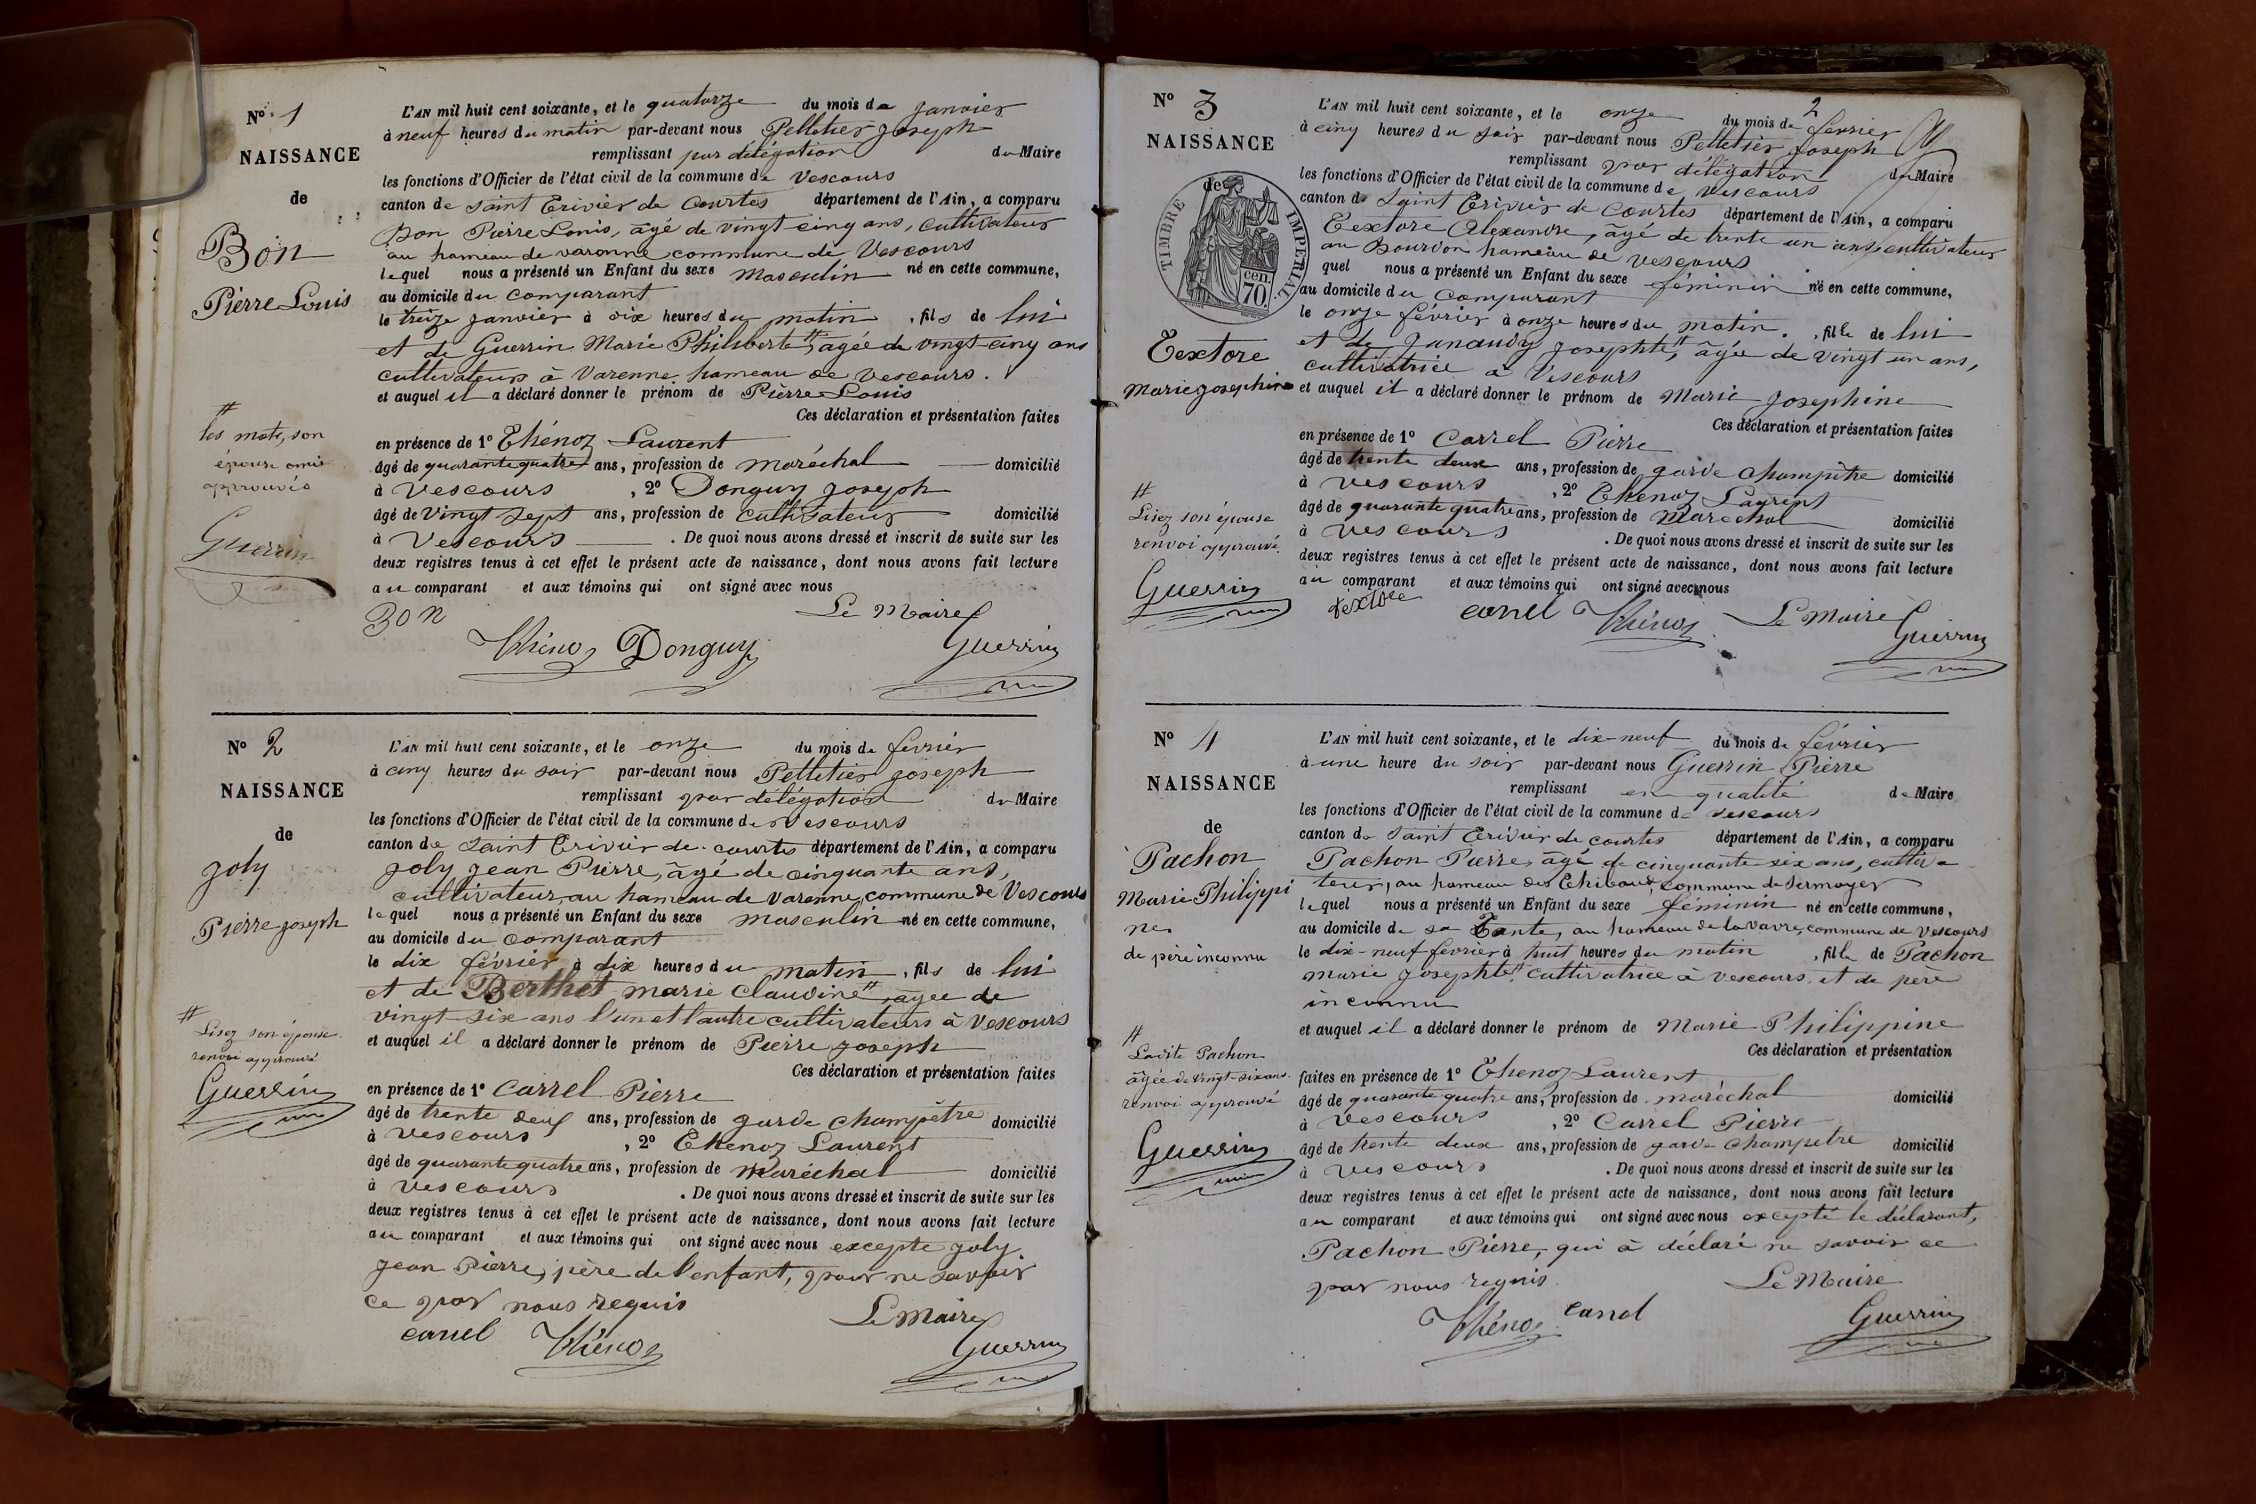 N° 1
NAISSANCE
de
Bon
Pierre Louis
L'AN mil huit cent soixante, et le quatorze du mois de janvier
à neuf heures du matin par-devant nous Pelletier Joseph
remplissant par délégation du Maire
les fonctions d'Officier de l'état civil de la commune de Vescours
canton de Saint Trivier de Courtes département de l'Ain, a comparu
Bon Pierre Louis, âgé de vingt cinq ans, cultivateur
au hameau de varenne commune de Vescours
lequel nous a présenté un Enfant du sexe masculin né en cette commune,
au domicile du comparant
le treize janvier à dix heures du matin, fils de lui
et de Guerrin Marie Philiberte #, agée de vingt-cinq ans
cultivateurs à Varenne hameau de Vescours.
et auquel il a déclaré donner le prénom de Pierre Louis
Ces déclaration et présentation faites
en présence de 1° Thénoz Laurent
âgé de quarante quatre ans, profession de maréchal domicilié
à Vescours, 2° Donguy Joseph
âgé de vingt sept ans, profession de cultivateur domicilié
à Vescours. De quoi nous avons dressé et inscrit de suite sur les
deux registres tenus à cet effet le présent acte de naissance, dont nous avons fait lecture
au comparant et aux témoins qui ont signé avec nous
# les mots, son
épouse omis
approuvés
Guerrin
Bon
Le Maire
Thénoz Donguy Guerrin
N° 2
NAISSANCE
de
Joly
Pierre Joseph
L'AN mil huit cent soixante, et le onze du mois de février
à cinq heures du soir par-devant nous Pelletier Joseph
remplissant par délégation du Maire
les fonctions d'Officier de l'état civil de la commune de Vescours
canton de Saint Trivier de courtes département de l'Ain, a comparu
Joly Jean Pierre, âgé de cinquante ans,
cultivateur au hameau de Varenne, commune de Vescours
lequel nous a présenté un Enfant du sexe masculin né en cette commune,
au domicile du comparant
le dix février à dix heures du matin, fils de lui
et de Berthet marie Claudine #, agée de
vingt-six ans l'un et l'autre cultivateurs à Vescours
et auquel il a déclaré donner le prénom de Pierre Joseph
Ces déclaration et présentation faites
en présence de 1° Carrel Pierre
âgé de trente deux ans, profession de garde champêtre domicilié
à Vescours, 2° Thenoz Laurent
âgé de quarante quatre ans, profession de maréchal domicilié
à Vescours. De quoi nous avons dressé et inscrit de suite sur les
deux registres tenus à cet effet le présent acte de naissance, dont nous avons fait lecture
au comparant et aux témoins qui ont signé avec nous excepté Joly
Jean Pierre, père de l'enfant, pour ne savoir
ce par nous requis
# Lisez son épouse
renvoi approuvé
Guerrin
Le Maire
carrel Thénoz Guerrin
2
N° 3
NAISSANCE
de
TIMBRE IMPERIAL
cen. 70.
Textore
Marie Josephine
L'AN mil huit cent soixante, et le onze du mois de février
à cinq heures du soir par-devant nous Pelletier Joseph
remplissant par délégation du Maire
les fonctions d'Officier de l'état civil de la commune de Vescours
canton de Saint Trivier de Courtes département de l'Ain, a comparu
Textore Alexandre, âgé de trente un ans cultivateur
au Bourdon hameau de Vescours
quel nous a présenté un Enfant du sexe féminin né en cette commune,
au domicile du comparant
le onze février à onze heures du matin, fille de lui
et de Janaudy Josephte #, âgée de vingt un ans,
cultivatrice à Vescours
et auquel il a déclaré donner le prénom de Marie Josephine
Ces déclaration et présentation faites
en présence de 1° Carrel Pierre
âgé de trente deux ans, profession de garde champêtre domicilié
à Vescours, 2° Thenoz Laurent
âgé de quarante quatre ans, profession de Maréchal domicilié
à Vescours. De quoi nous avons dressé et inscrit de suite sur les
deux registres tenus à cet effet le présent acte de naissance, dont nous avons fait lecture
au comparant et aux témoins qui ont signé avec nous
# Lisez son épouse
renvoi approuvé.
Guerrin
textore carrel Thénoz Le Maire
Guerrin
N° 4
NAISSANCE
de
Pachon
Marie Philippi
ne
de père inconnu
L'AN mil huit cent soixante, et le dix-neuf du mois de février
à une heure du soir par-devant nous Guerrin Pierre
remplissant en qualité de Maire
les fonctions d'Officier de l'état civil de la commune de Vescours
canton de Saint Trivier de courtes département de l'Ain, a comparu
Pachon Pierre, âgé de cinquante-six ans, cultiva
teur, au hameau des Thibauds, commune de Sermoyer
lequel nous a présenté un Enfant du sexe féminin né en cette commune,
au domicile de sa Tante, au hameau de la Vavre, commune de Vescours
le dix-neuf février à huit heures du matin, fille de Pachon
marie Josephte # cultivatrice à Vescours, et de père
inconnu
et auquel il a déclaré donner le prénom de Marie Philippine
Ces déclaration et présentation
faites en présence de 1° Thenoz Laurent
âgé de quarante quatre ans, profession de maréchal domicilié
à Vescours, 2° Carrel Pierre
âgé de trente deux ans, profession de garde champetre domicilié
à Vescours. De quoi nous avons dressé et inscrit de suite sur les
deux registres tenus à cet effet le présent acte de naissance, dont nous avons fait lecture
au comparant et aux témoins qui ont signé avec nous excepté le déclarant,
Pachon Pierre, qui à déclaré ne savoir ce
par nous requis.
# Ladite Pachon
âgée de vingt-six ans.
renvoi approuvé
Guerrin
Le Maire
Thénoz carrel Guerrin